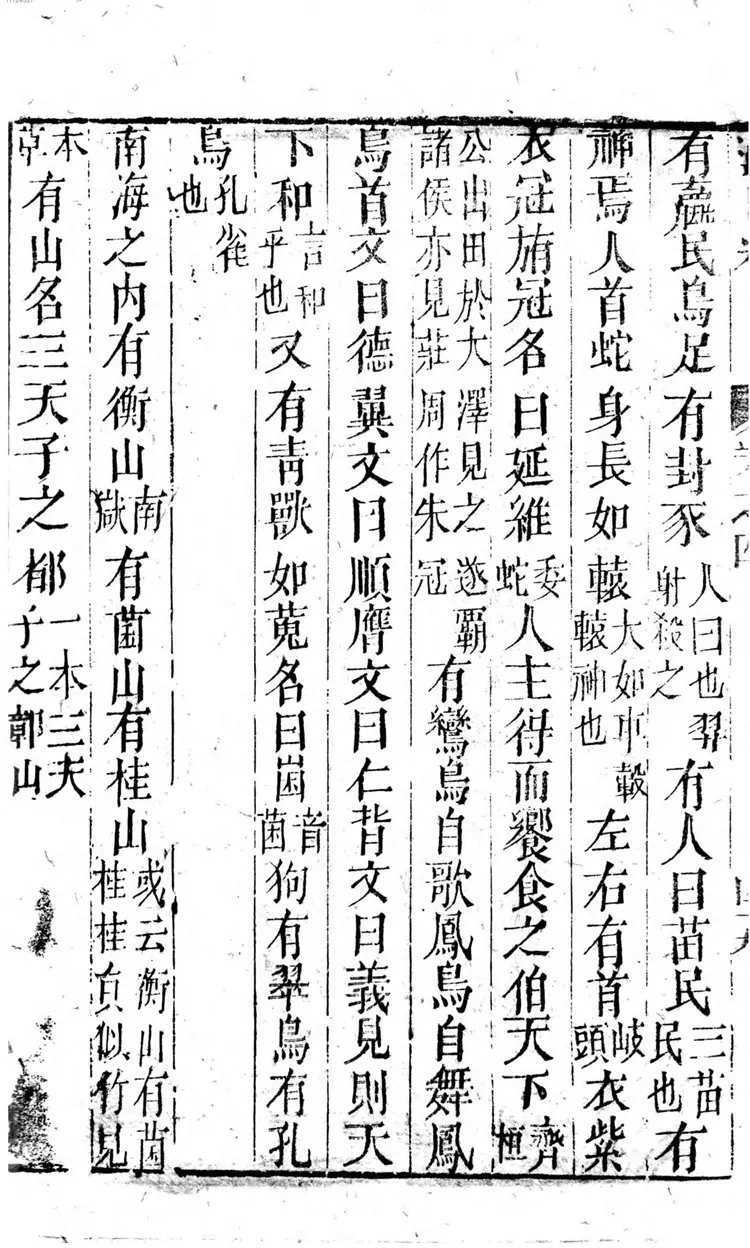 有嬴民鳥足有封豕人曰也羿射殺之有人曰苗民三苗民也有
神焉人首蛇身長如轅大如車轂轅神也左右有首岐頭衣紫
衣冠旃冠名曰延維委蛇人主得而饗食之伯天下齊桓
公出田於大澤見之遂霸諸侯亦見莊周作朱冠有鸞鳥自歌鳳鳥自舞鳳
鳥首文曰德翼文曰順膺文曰仁背文曰義見則天
下和言和乎也又有青獸如菟名曰𡿢音菌狗有翠鳥有孔
鳥孔雀也
南海之内有衡山南嶽有菌山有桂山或云衡山有菌桂桂員似竹見
本草有山名三天子之都一本三天子之鄣山